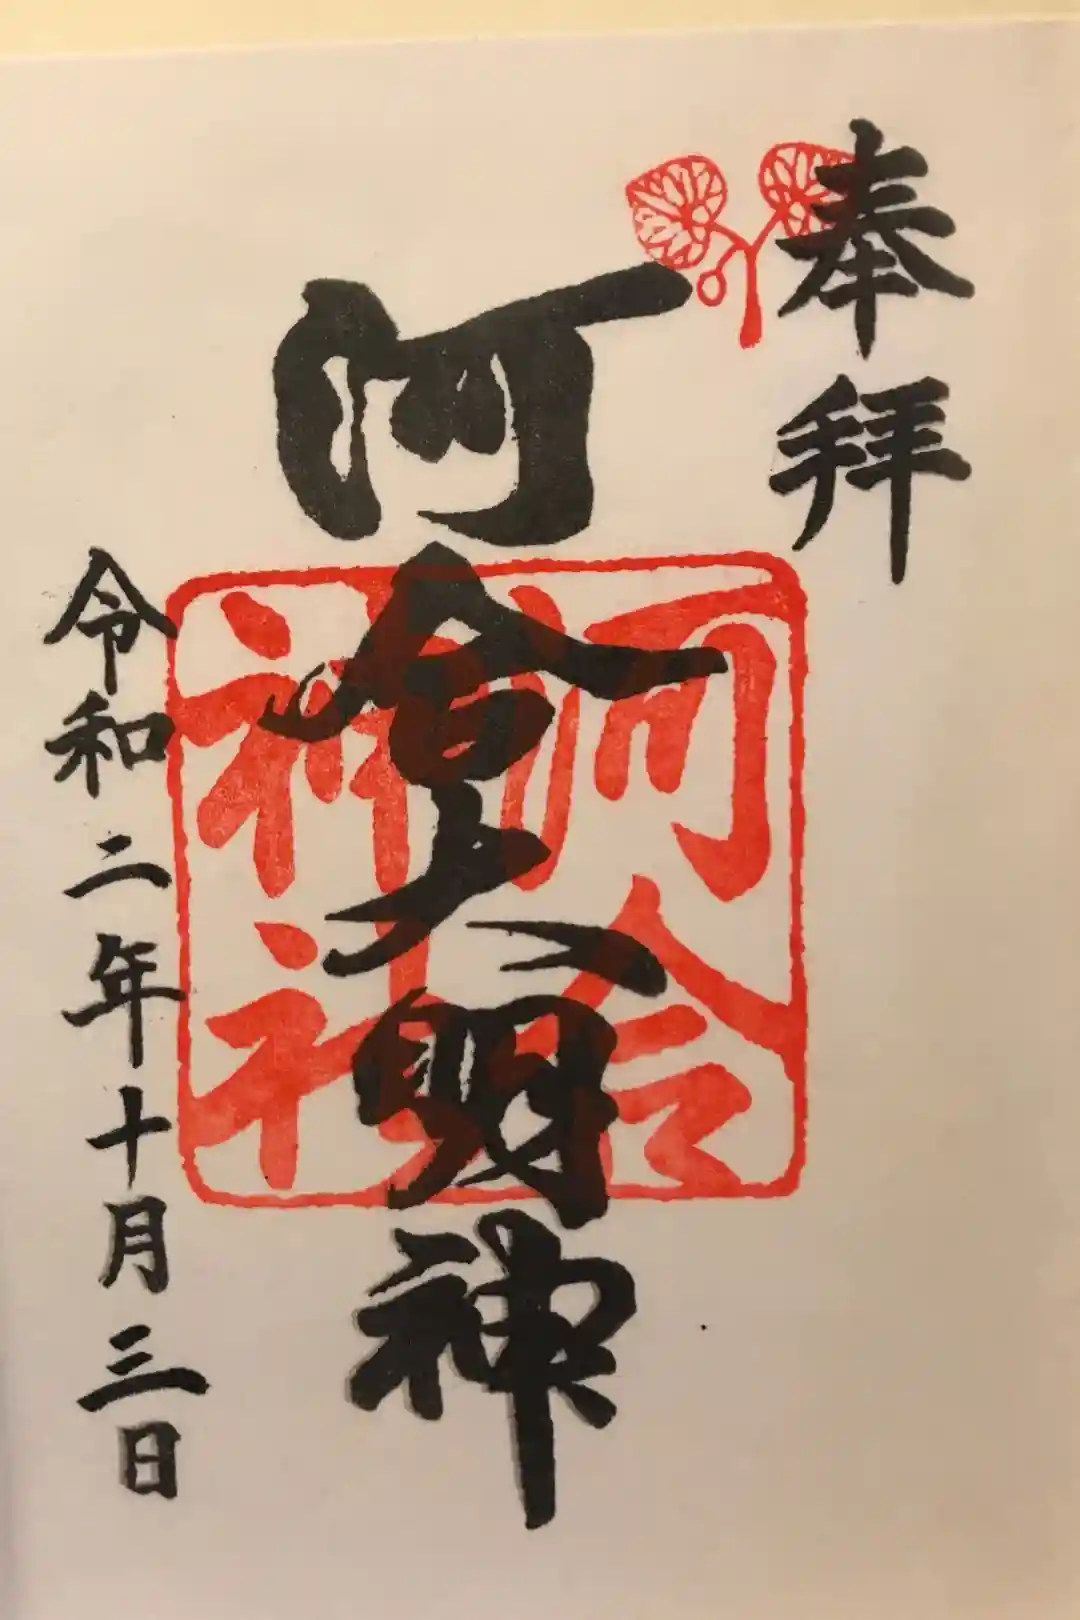 奉拝
河合大明神
河合
神社
令和二年十月三日